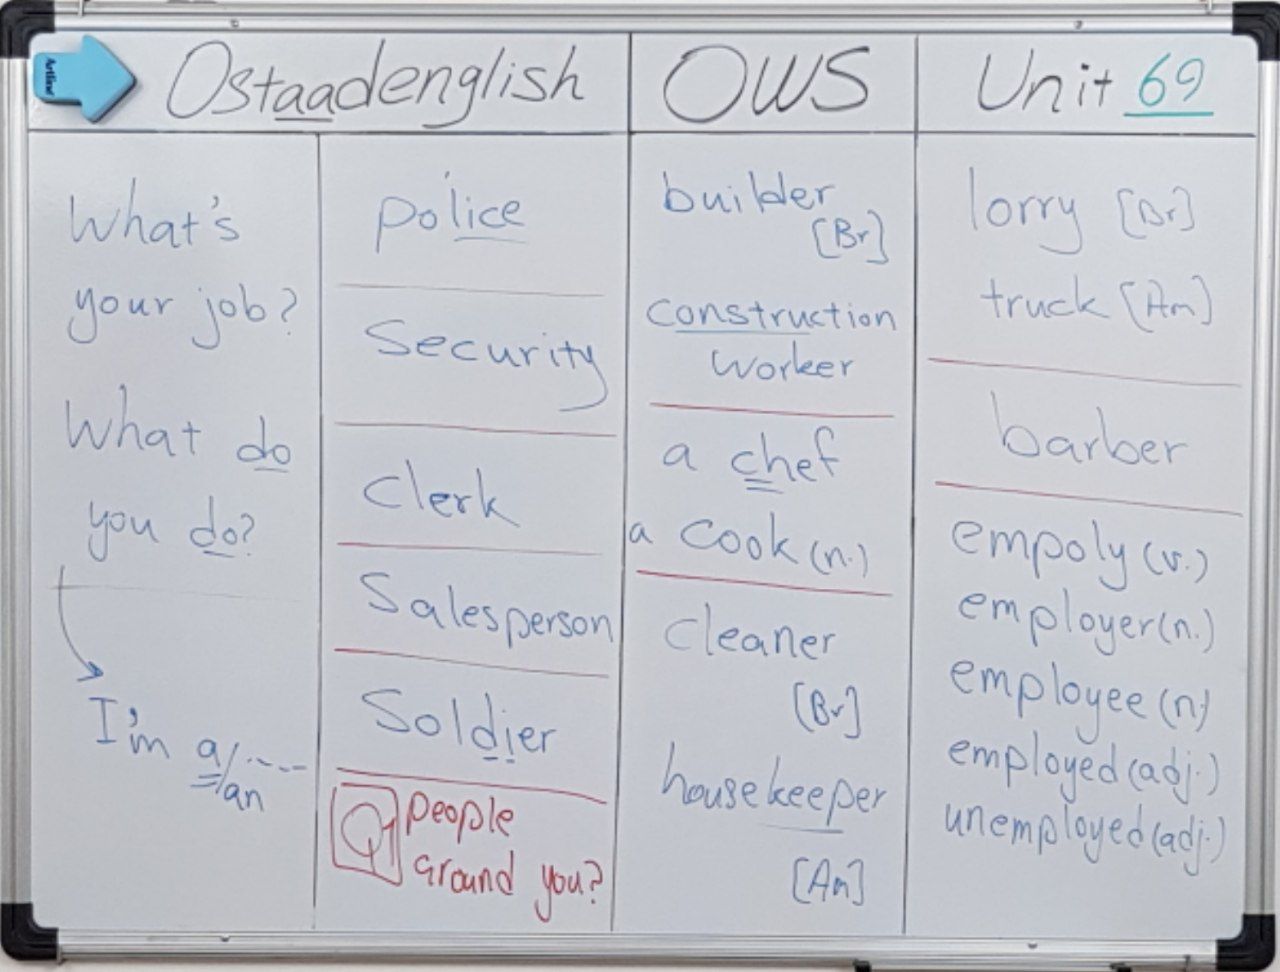 Artline
Ostaadenglish
OWS
Unit 69
What's
your job?
What do
you do?
I'm a/an .....
police
Security
Clerk
Salesperson
Soldier
Q1 people
around you?
builder
[Br]
construction
worker
a chef
a cook (n.)
cleaner
[Br]
housekeeper
[Am]
lorry [Br]
truck [Am]
barber
empoly (v.)
employer (n.)
employee (n)
employed (adj.)
unemployed (adj.)